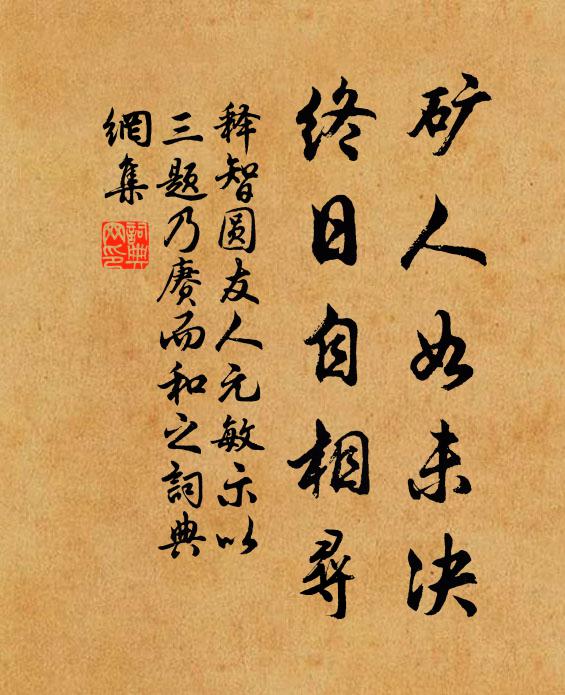 矿人如未决
终日自相寻
释智圆友人元敏示以
三题乃赓而和之詞典
網集
詞典
网印